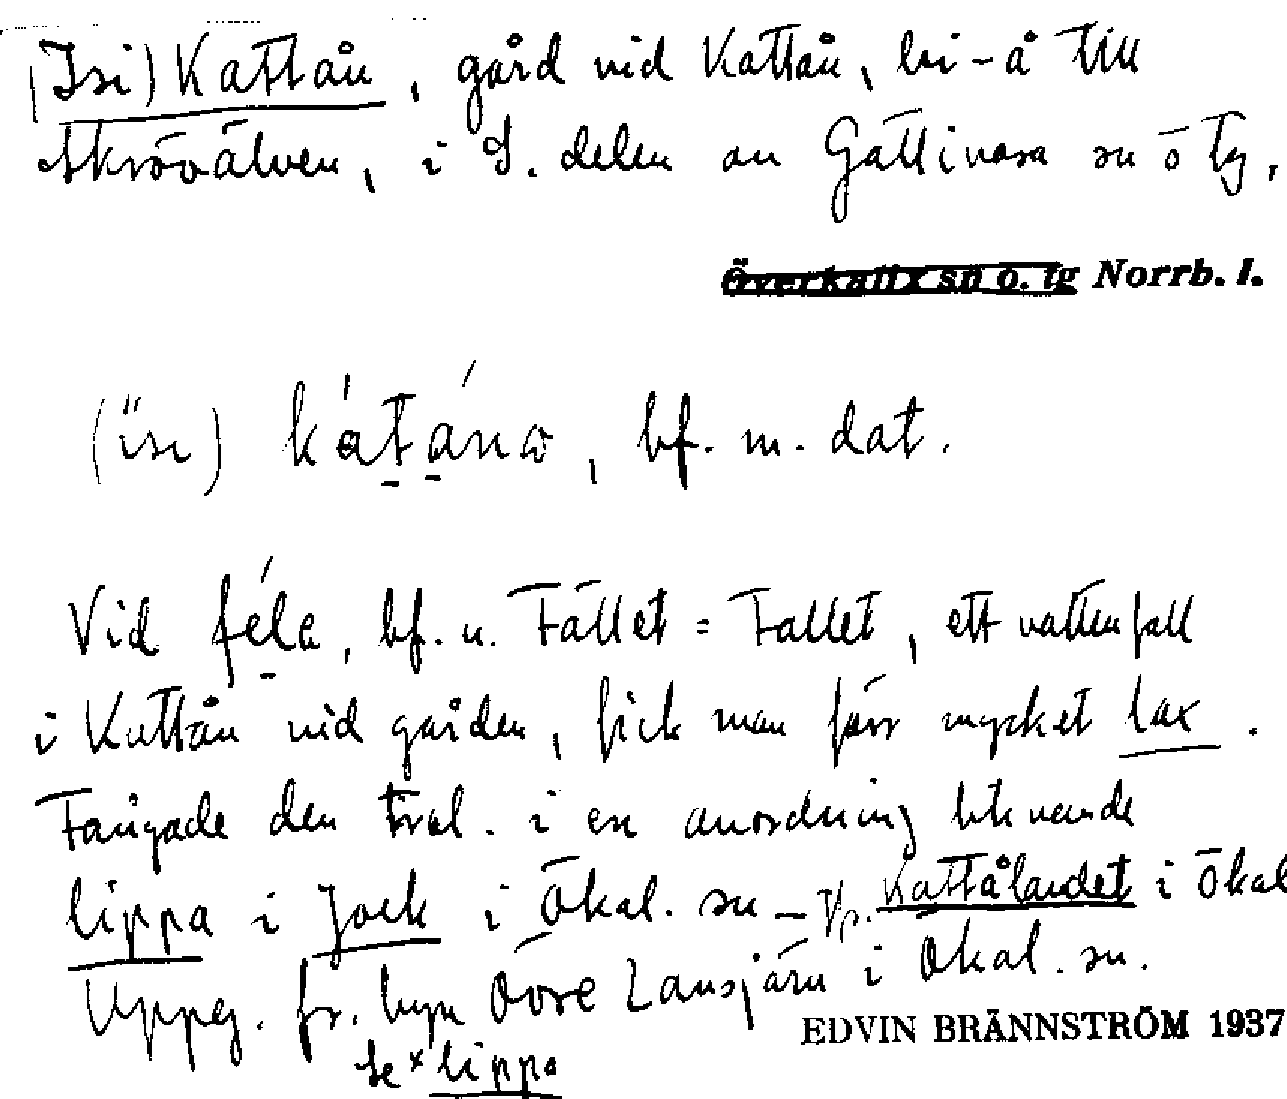 (Isi) Kattån, gård vid Kattån, bi-å till
Skröväl̈ven, i S. delen av Gällivare sn o tg,
Överkalix sn o. tg Norrb. l.
(ïsi) kátánα, bf. m. dat.
Vid féle, bf. n. Fället = Fallet, ett vattenfall
i Kattån vid gården, fick man förr mycket lax.
Fångade den trol. i en anordning liknande
lippa i Jock i Ökal. sn – Jfr. Kattålandet i Ökal
Uppg. fr. byn Övre Lansjärv i Ökal. sn.
EDVIN BRÄNNSTRÖM 1937
Se × lippa